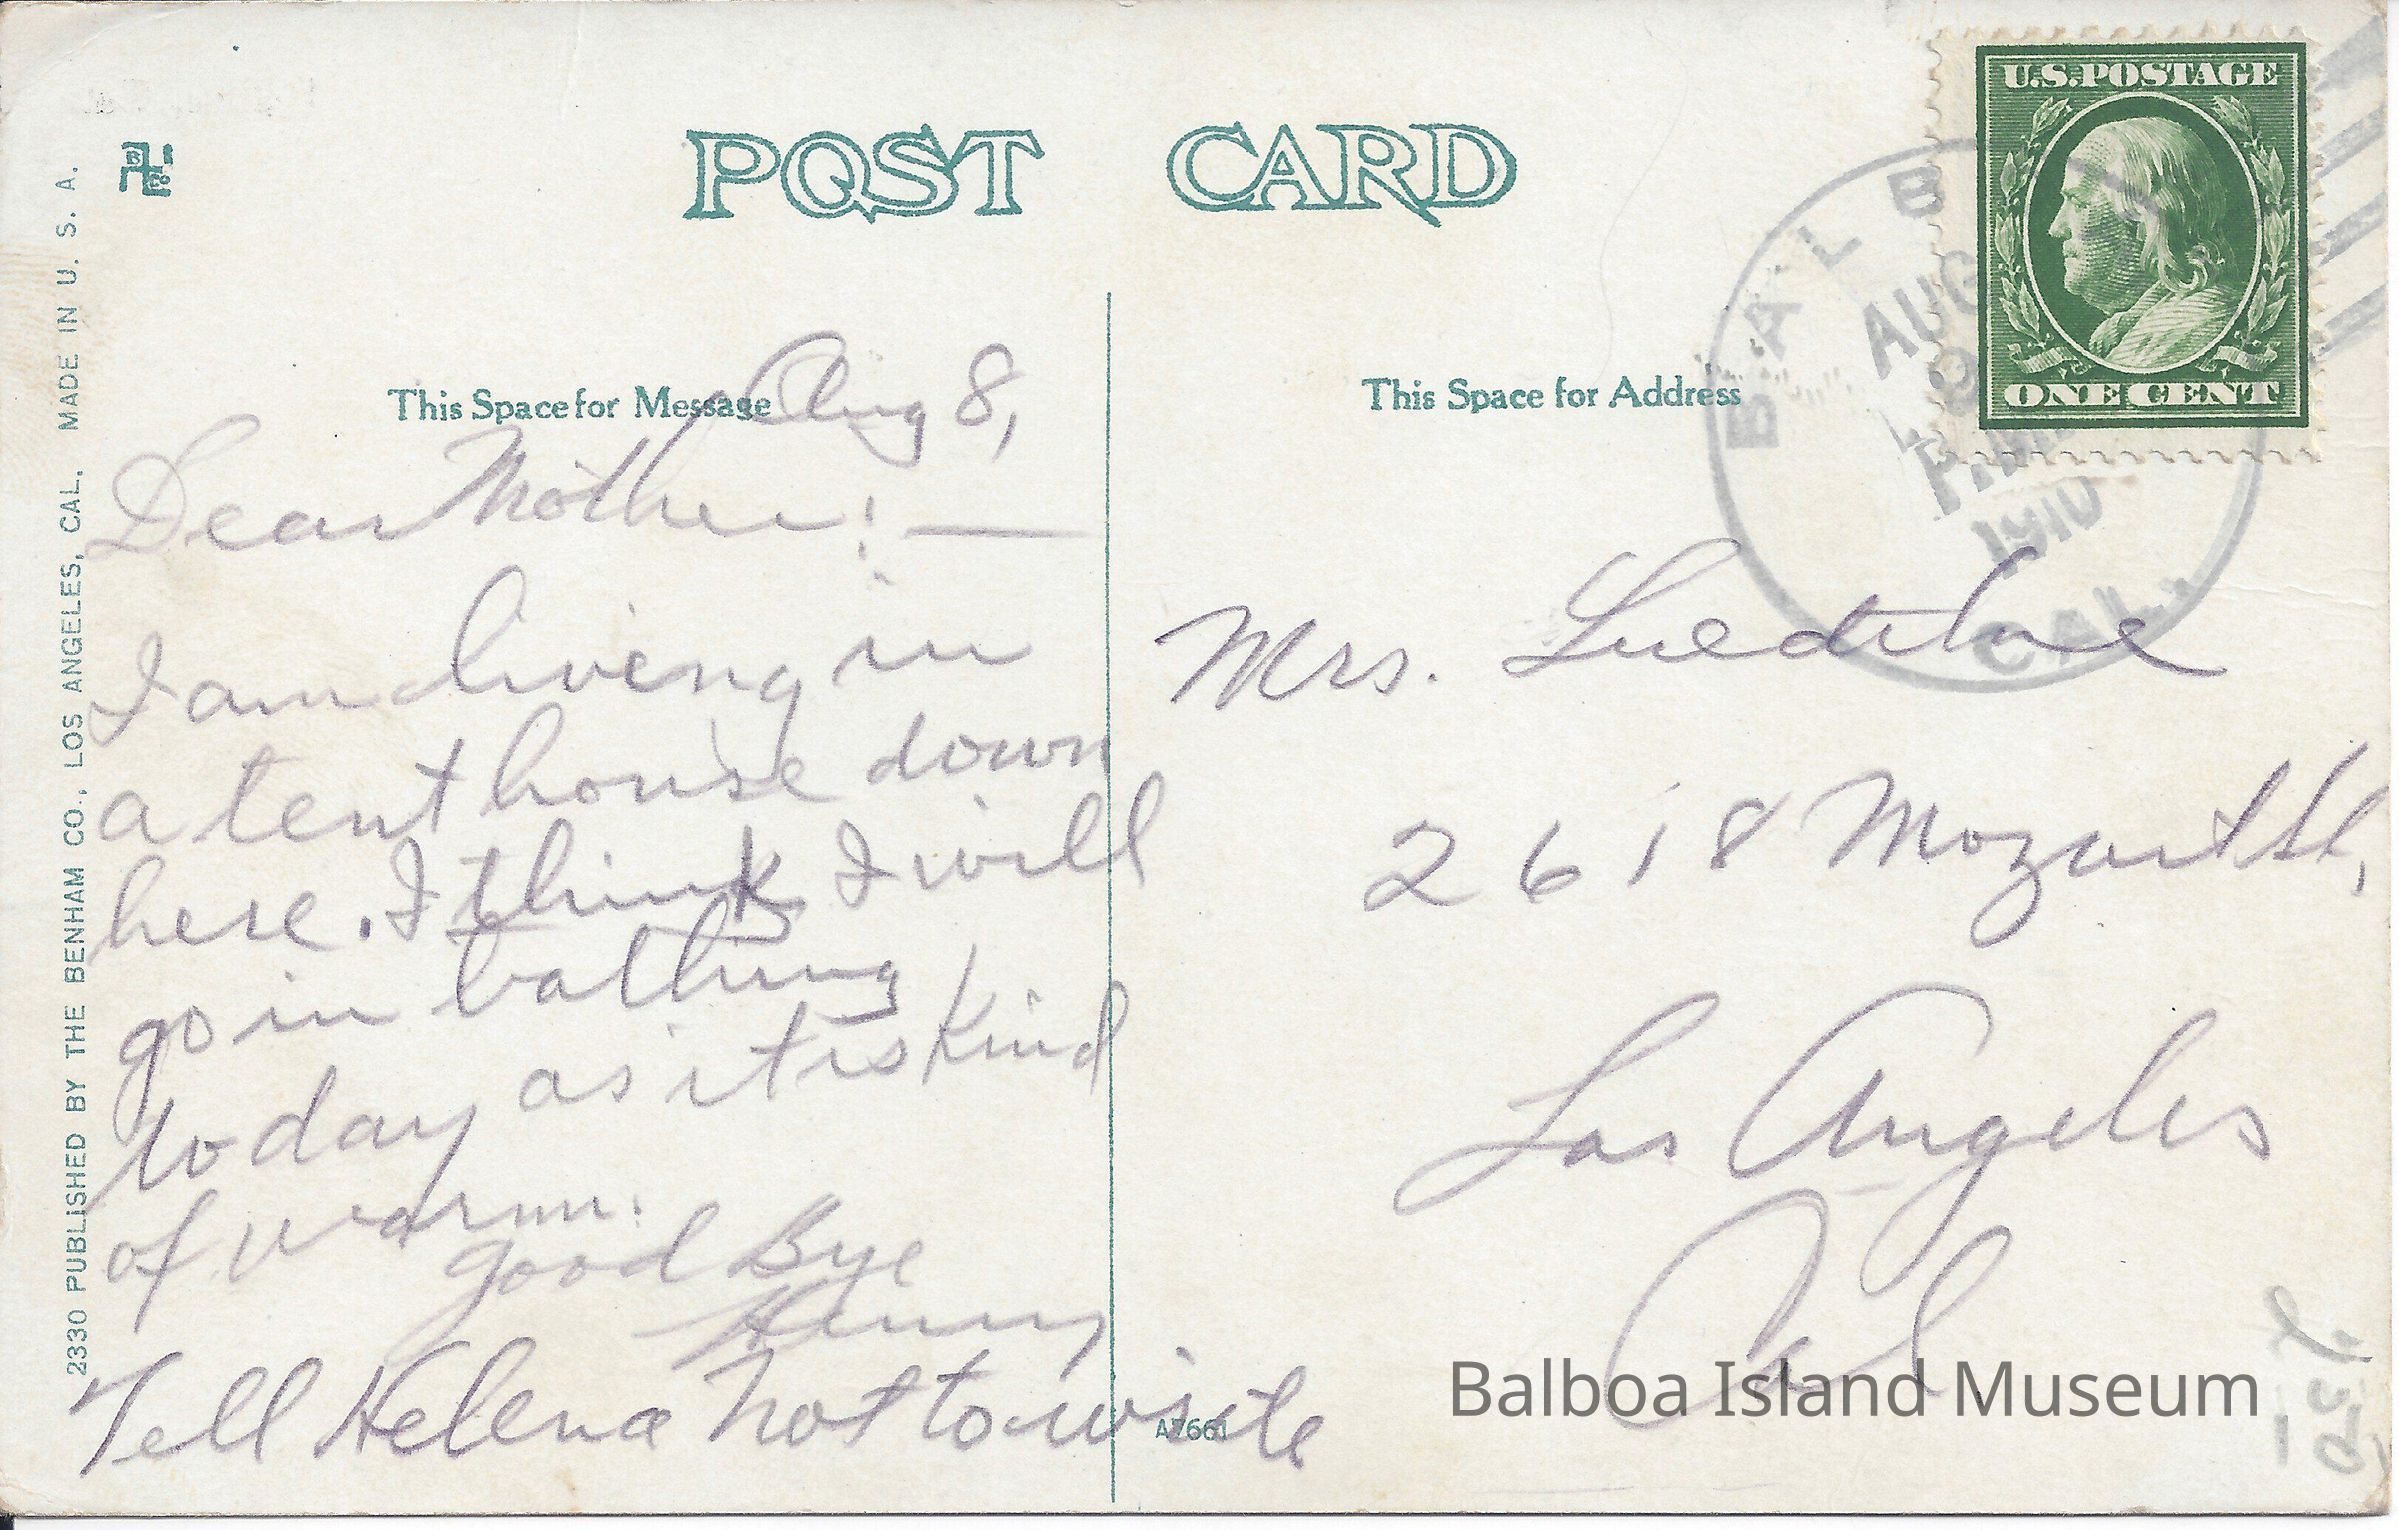 POST CARD
U.S. POSTAGE
ONE CENT
BALB
AUG
9
P.M.
1910
CAL.
This Space for Message
This Space for Address
Aug 8,
Dear Mother:—
I am living in
a tent house down
here. I think I will
go in bathing
today as it is kind
of warm.
good Bye
Henry
Tell Helena not to write
Mrs.
2618 Mozart St,
Los Angeles
Cal
2330 PUBLISHED BY THE BENHAM CO., LOS ANGELES, CAL. MADE IN U. S. A.
Balboa Island Museum